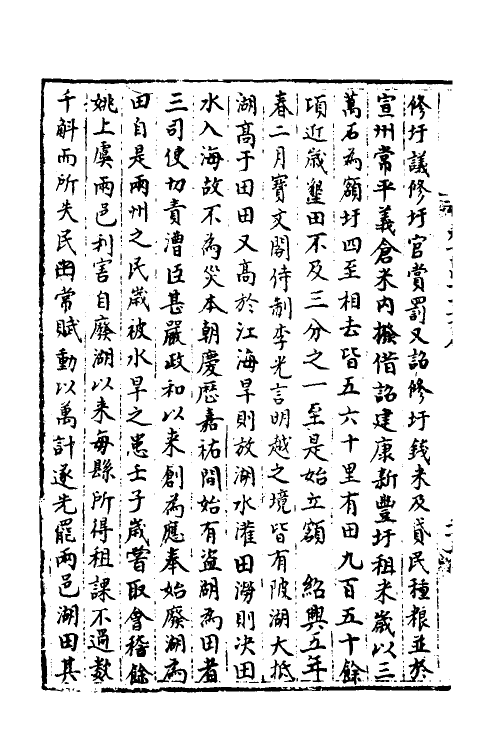 修圩議修圩官賞罰又詔修圩錢米及貸民種粮並於
宣州常平義倉米内撥借詔建康新豐圩租米歲以三
萬石為額圩四至相去皆五六十里有田九百五十餘
頃近歲墾田不及三分之一至是始立額 紹興五年
春二月寶文閣侍制李光言明越之境皆有陂湖大抵
湖髙于田田又髙於江海旱則放湖水灌田澇則决田
水入海故不為災本朝慶歴嘉祐間始有盗湖為田者
三司使切責漕臣甚嚴政和以来創為應奉始廢湖為
田自是兩州之民歲被水旱之患壬子歲嘗取會稽餘
姚上虞兩邑利害自廢湖以来每縣所得租課不過數
千斛而所失民田常賦動以萬計遂先罷兩邑湖田其